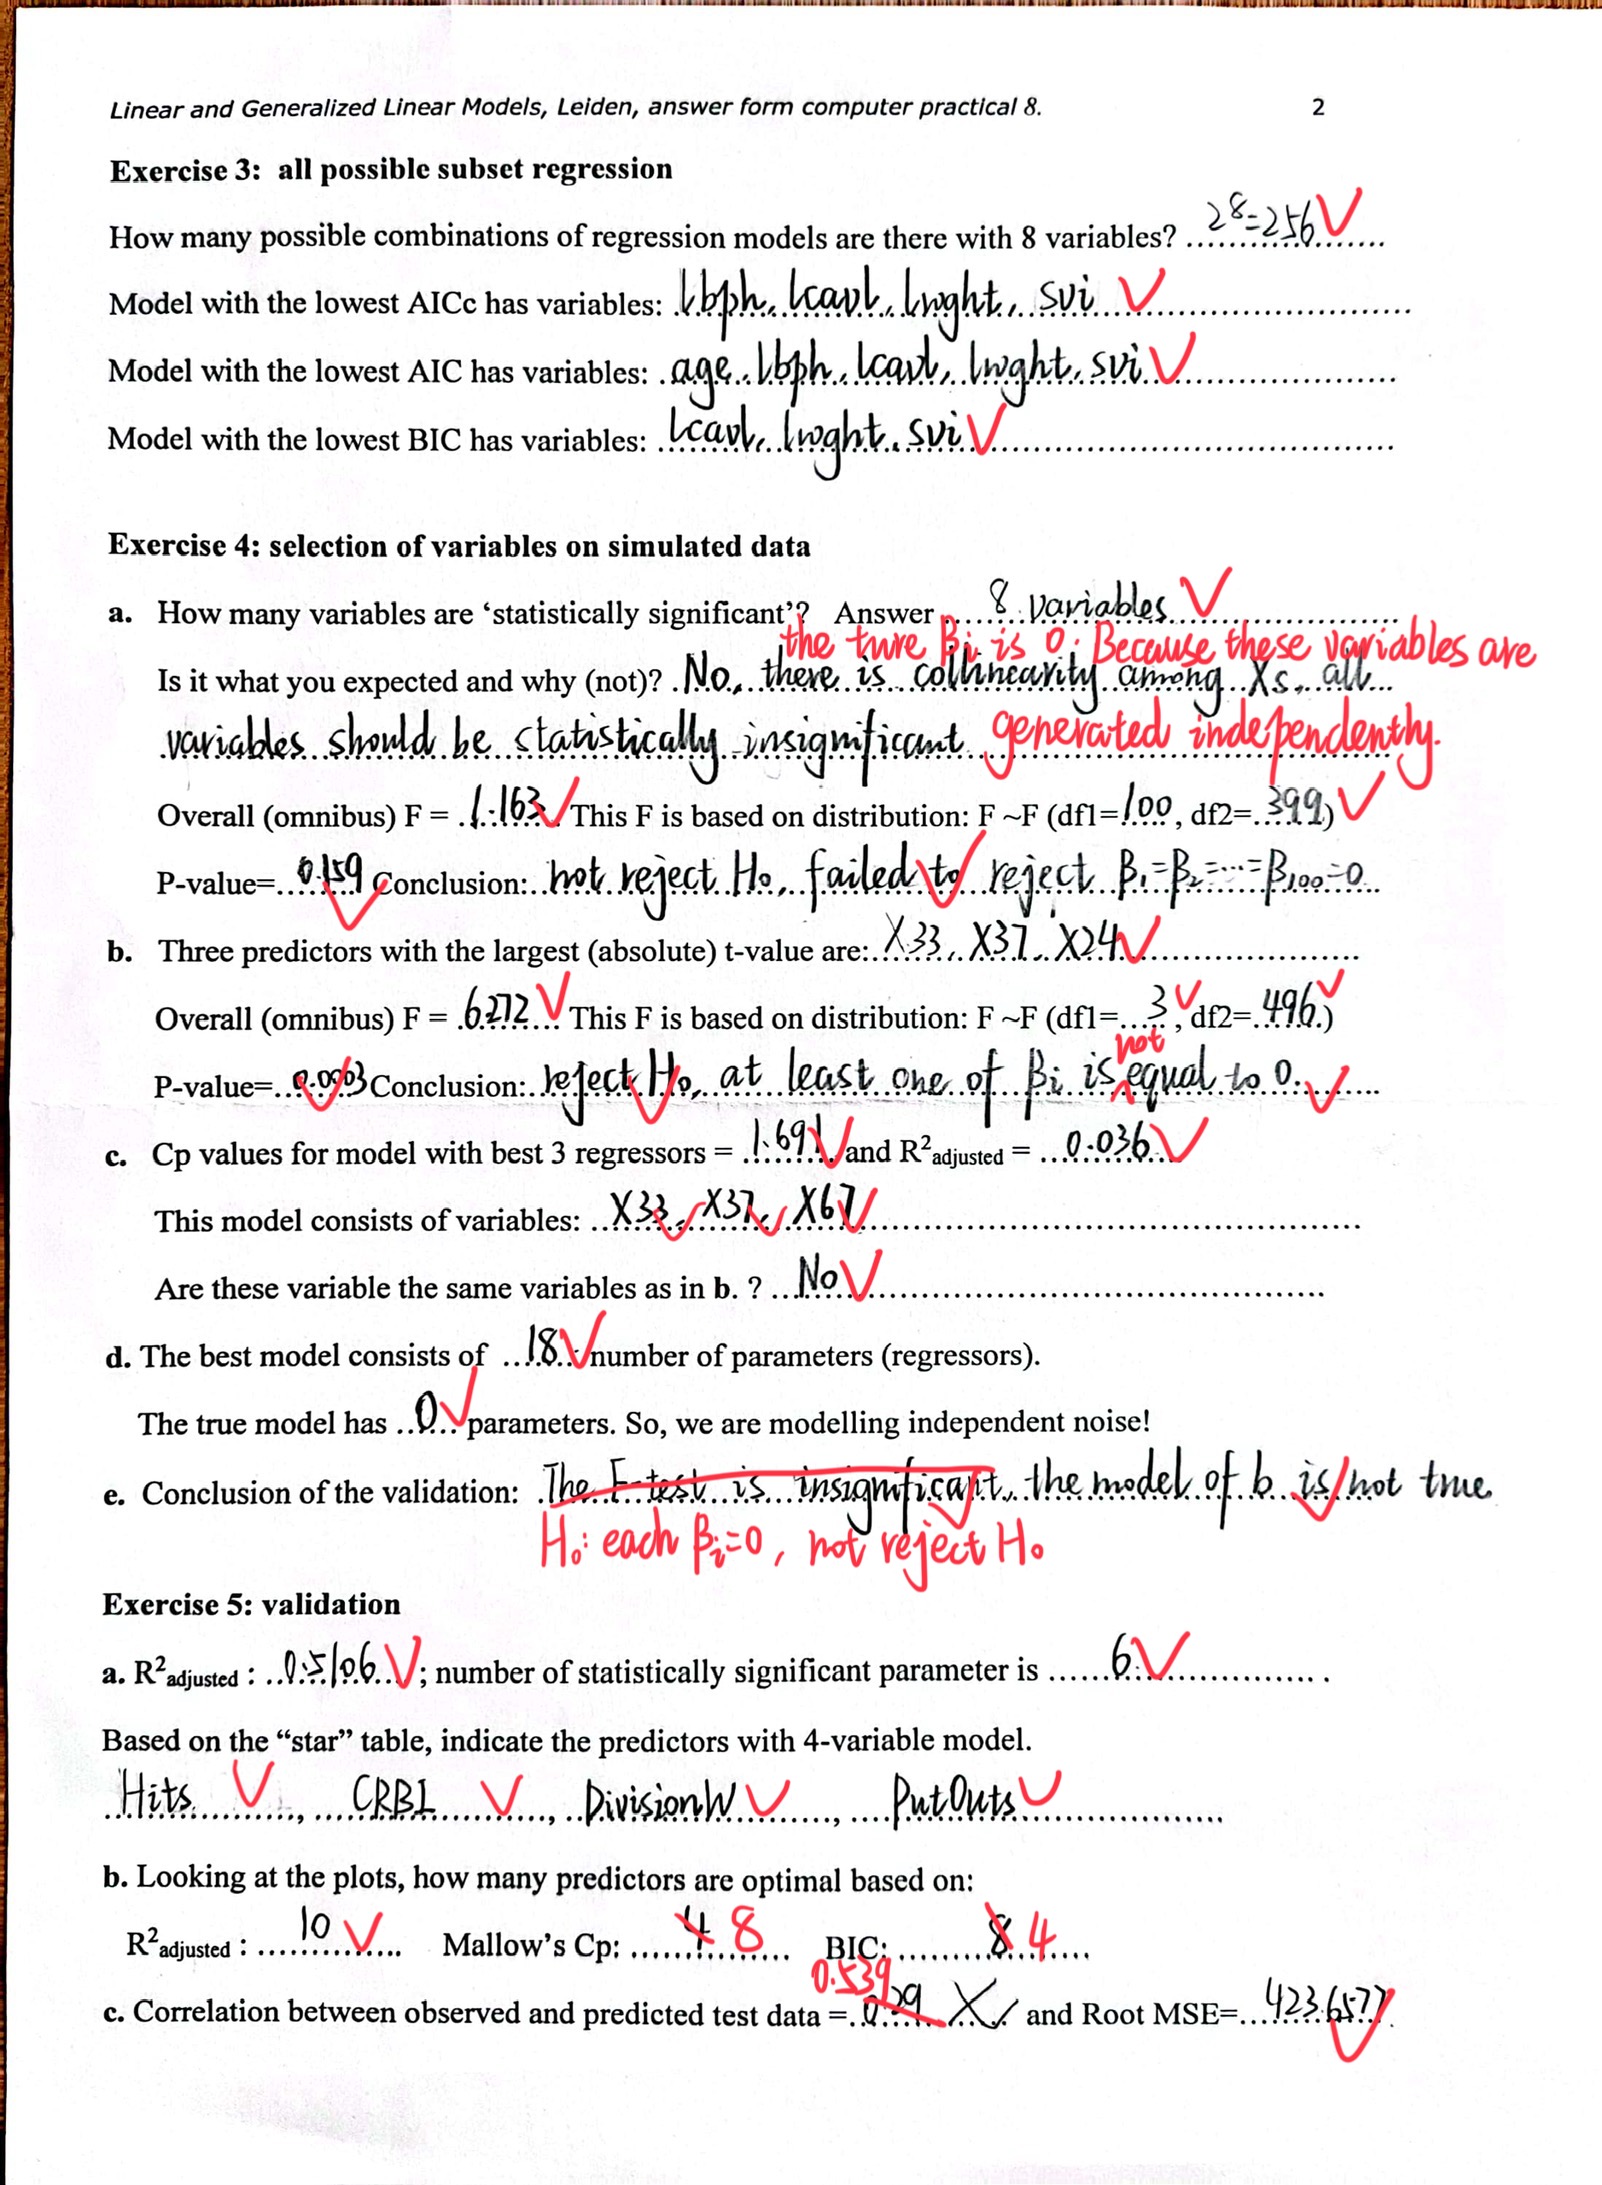 Linear and Generalized Linear Models, Leiden, answer form computer practical 8. 2
Exercise 3: all possible subset regression
How many possible combinations of regression models are there with 8 variables? 2⁸=256
Model with the lowest AICc has variables: lbph, lcavl, lwght, svi
Model with the lowest AIC has variables: age, lbph, lcavl, lwght, svi
Model with the lowest BIC has variables: lcavl, lwght, svi
Exercise 4: selection of variables on simulated data
a. How many variables are ‘statistically significant’? Answer 8 variables
the ture βi is 0. Because these variables are
Is it what you expected and why (not)? No, there is collinearity among Xs, all
variables should be statistically insignificant generated independently.
Overall (omnibus) F = 1.163 This F is based on distribution: F ~F (df1=100, df2=399)
P-value= 0.159 Conclusion: not reject H₀, failed to reject β₁=β₂=...=β₁₀₀=0
b. Three predictors with the largest (absolute) t-value are: X33, X37, X24
Overall (omnibus) F = 6.272 This F is based on distribution: F ~F (df1= 3, df2= 496.)
not
P-value= 0.0003 Conclusion: reject H₀, at least one of βi is equal to 0.
c. Cp values for model with best 3 regressors = 1.691 and R²adjusted = 0.036
This model consists of variables: X33, X37, X67
Are these variable the same variables as in b. ? No
d. The best model consists of 18 number of parameters (regressors).
The true model has 0 parameters. So, we are modelling independent noise!
e. Conclusion of the validation: The F-test is insignificant, the model of b is not true
H₀: each βi=0, not reject H₀
Exercise 5: validation
a. R²adjusted : 0.5106 ; number of statistically significant parameter is 6 .
Based on the “star” table, indicate the predictors with 4-variable model.
Hits, CRBI, DivisionW, PutOuts
b. Looking at the plots, how many predictors are optimal based on:
R²adjusted : 10 Mallow's Cp: 4 8 BIC: 8 4
0.539
c. Correlation between observed and predicted test data = and Root MSE= 423.6577